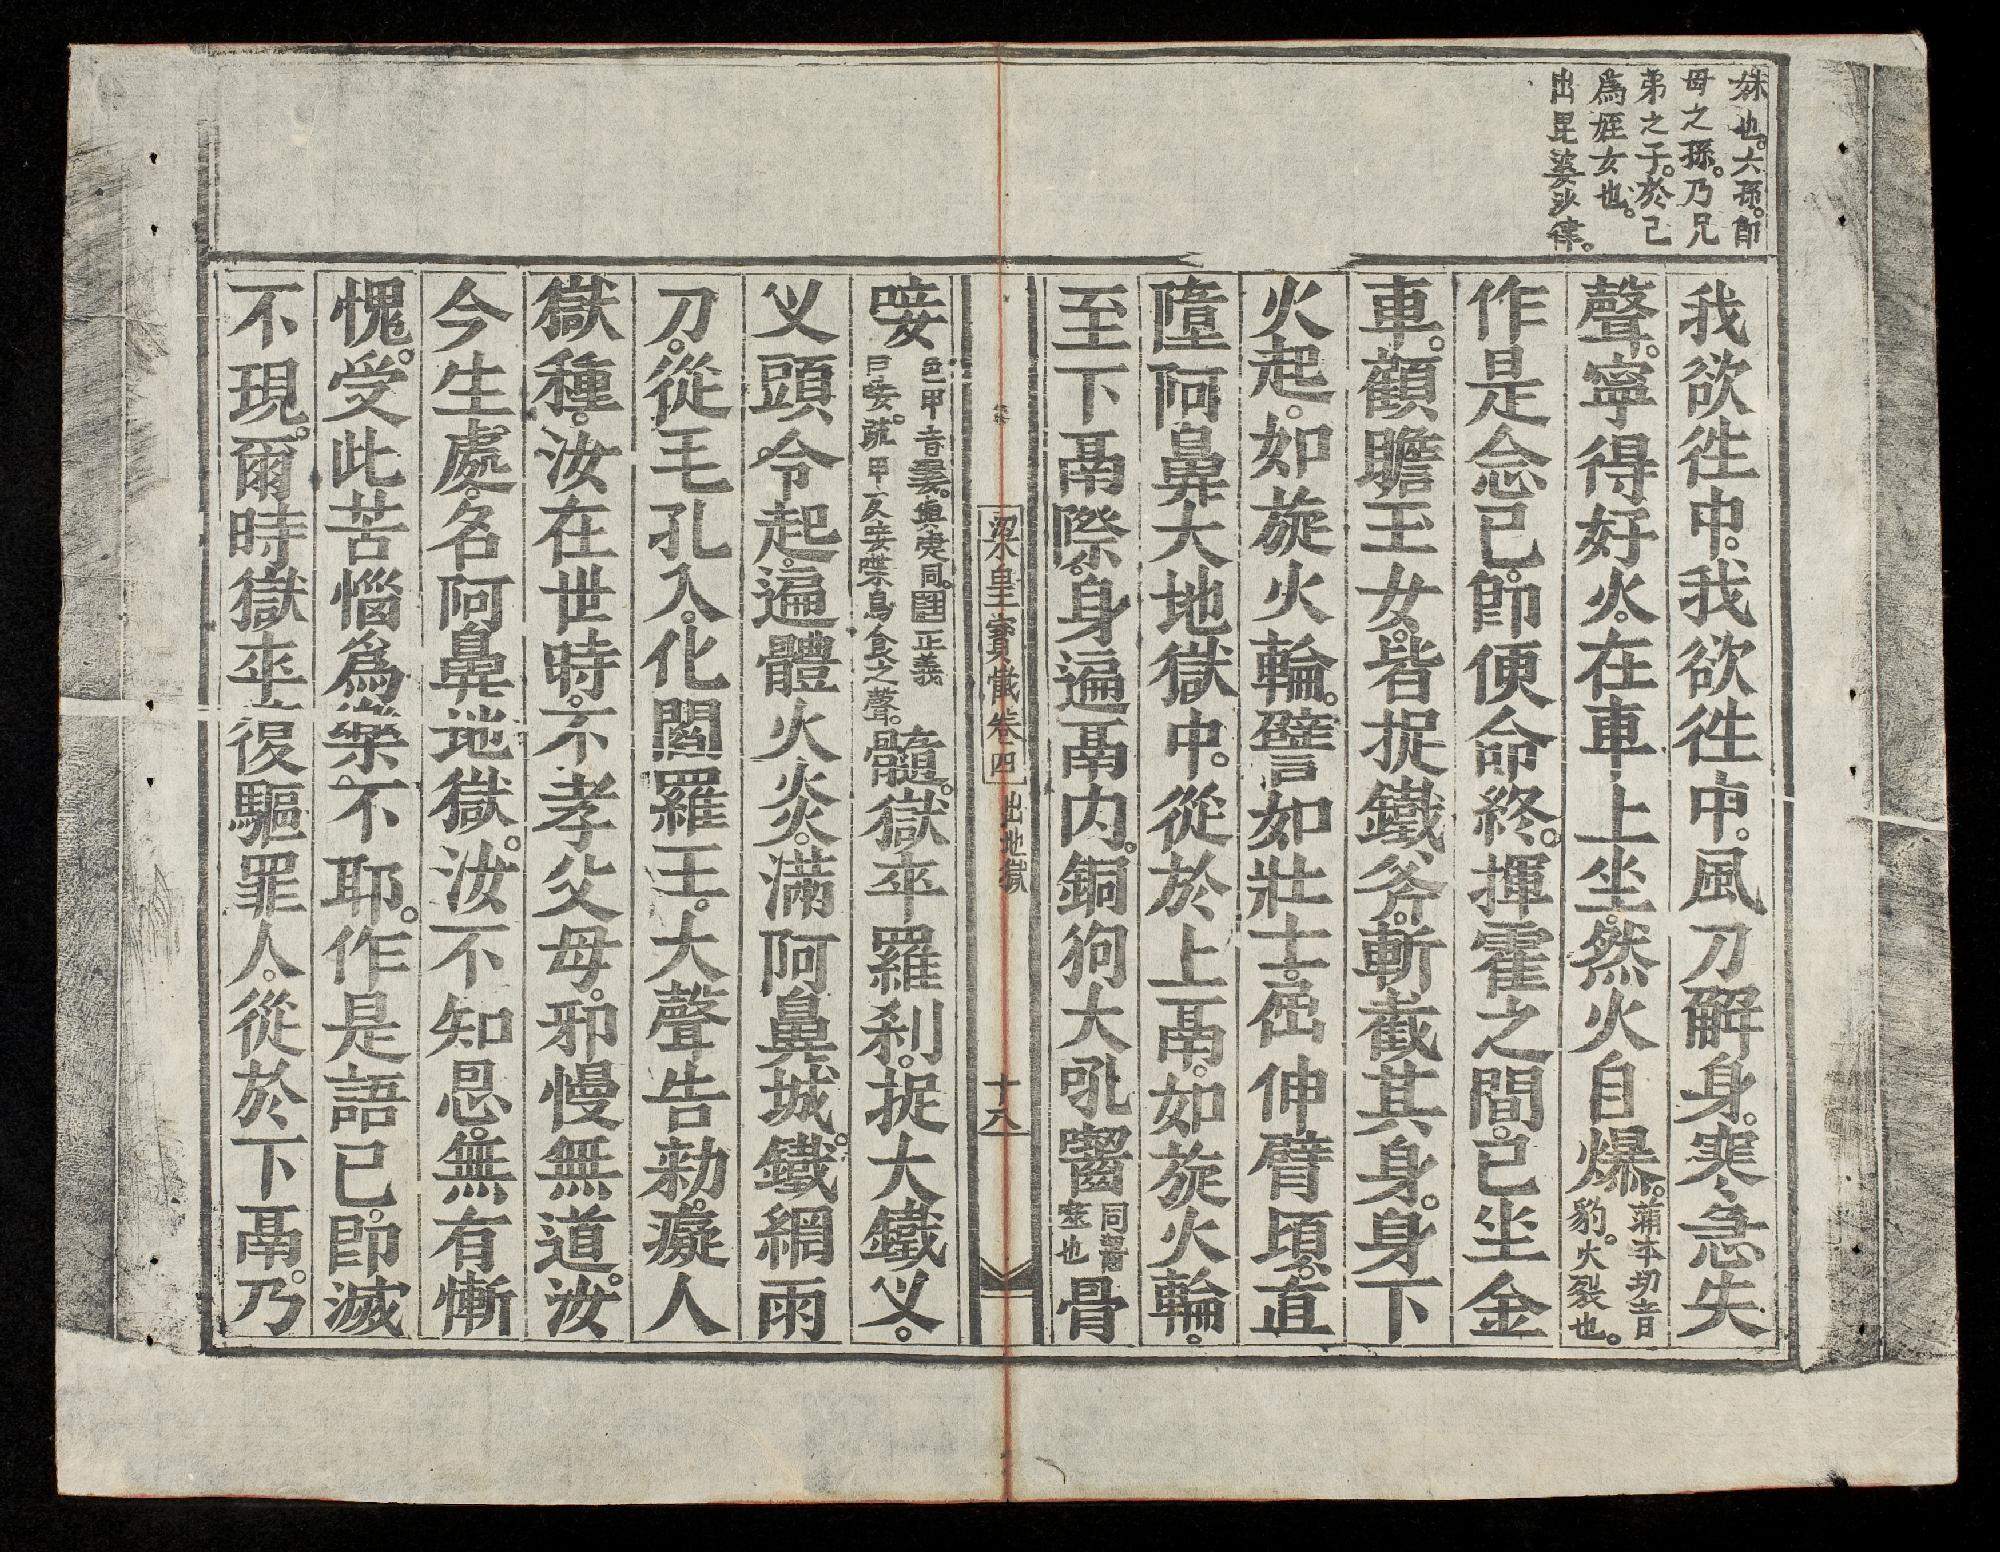 妹也。六孫。即
母之孫。乃兄
弟之子。於己
為姪女也。
出毘婆沙律。
我欲徃中。我欲徃中。風刀解身。寒急失
聲。寧得好火。在車上坐。然火自爆。蒲平切音豹。火裂也。
作是念已。即便命終。揮霍之間。已坐金
車。顧瞻王女。皆捉鐵斧。斬截其身。身下
火起。如旋火輪。譬如壯士。屈伸臂頃。直
墮阿鼻大地獄中。從於上鬲。如旋火輪。
至下鬲際。身遍鬲內。銅狗大吼。齧骨
梁皇寳懺卷四 出地獄 十八
唼髓。獄卒羅刹。捉大鐵义。
义頭令起。遍體火炎。滿阿鼻城。鐵網雨
刀。從毛孔入。化閻羅王。大聲告勑。癡人
獄種。汝在世時。不孝父母。邪慢無道。汝
今生處。名阿鼻地獄。汝不知恩。無有慚
愧。受此苦惱。為樂不耶。作是語已。即滅
不現。爾時獄卒。復驅罪人。從於下鬲。乃